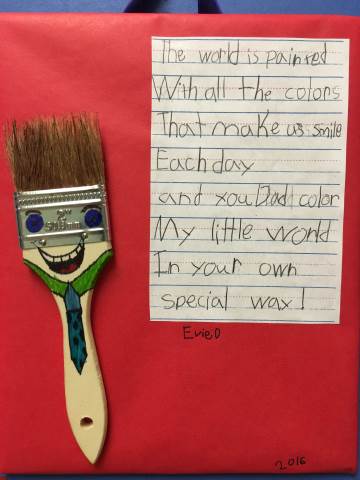 The world is painted
With all the colors
That make us smile
Each day
and you Dad color
My little world
In your own
special way!
Evie.D
2016